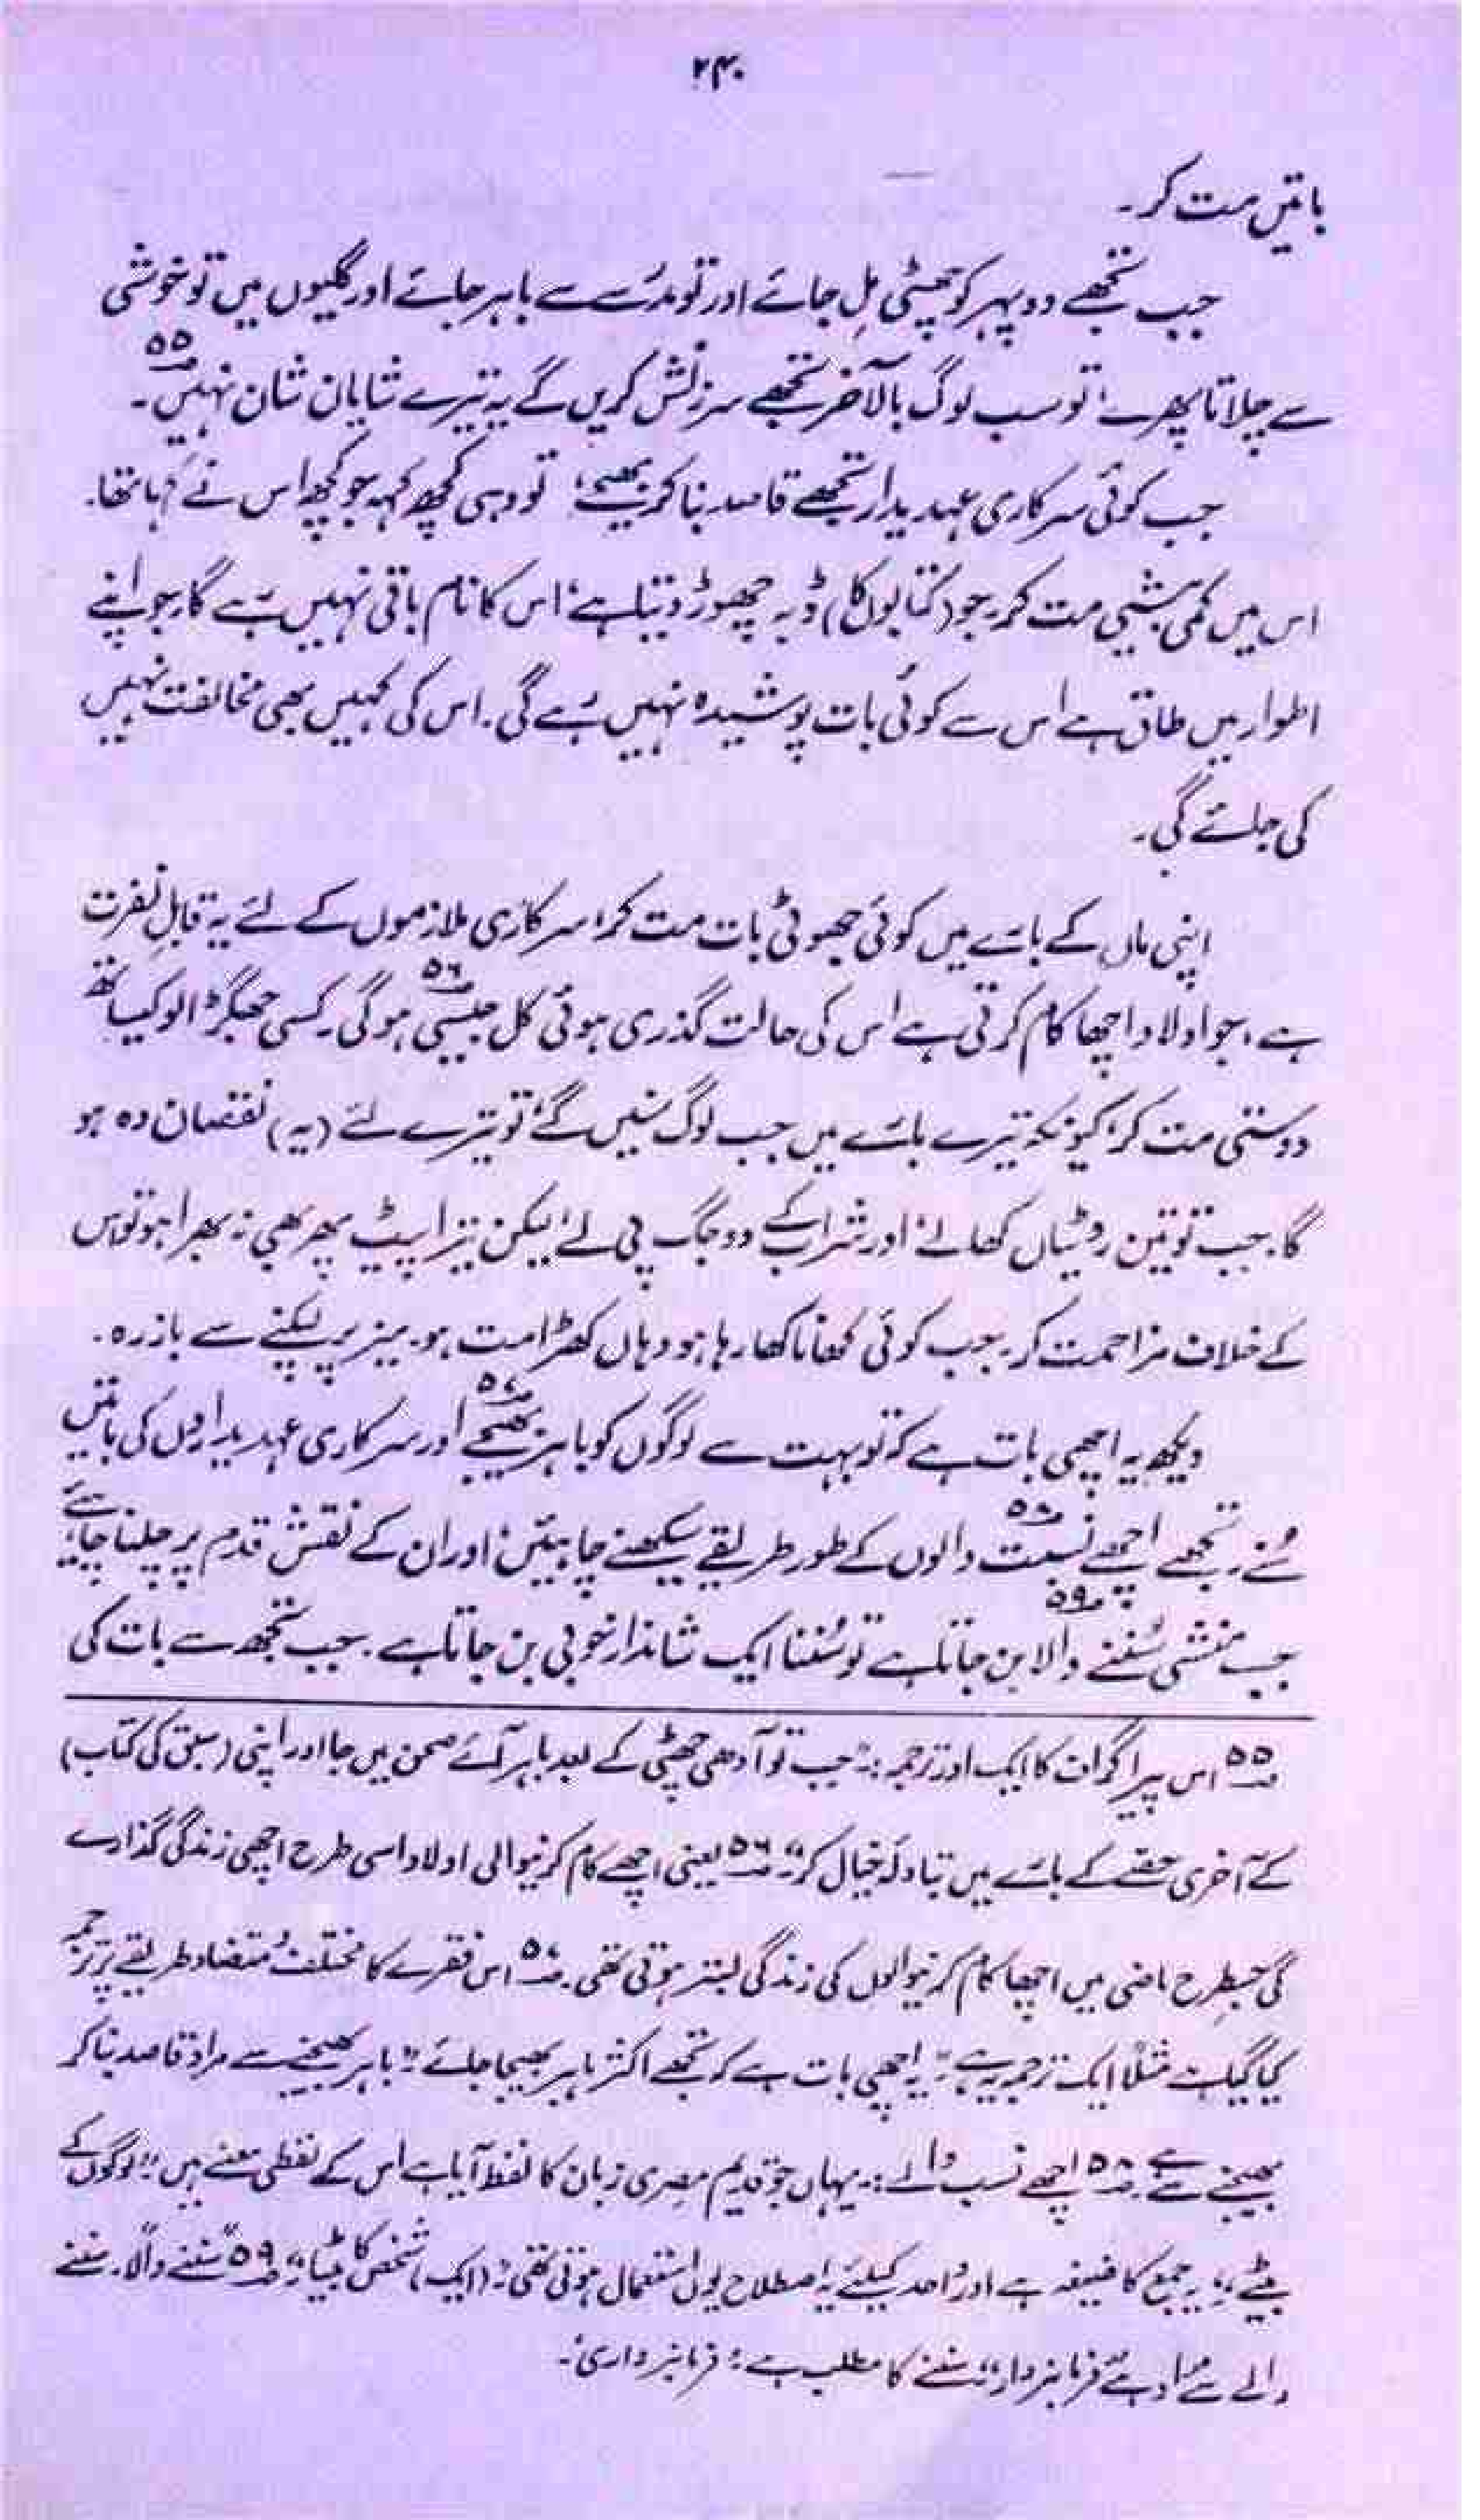 ۲۴۰
باتیں مت کر۔
جب تجھے دوپہر کو چھٹی مل جائے اور تو مدرسے سے باہر جائے اور گلیوں میں تو خوشی
سے چلاتا پھرے، تو سب لوگ بالآخر تجھے سرزنش کریں گے یہ تیرے شایان شان نہیں۵۵۔
جب کوئی سرکاری عہدیدار تجھے قاصد بنا کر بھیجے، تو وہی کچھ کہہ جو کچھ اس نے کہا تھا۔
اس میں کمی بیشی مت کر۔ جو (کتابوں کا) ڈبہ چھوڑ دیتا ہے، اس کا نام باقی نہیں رہے گا۔ جو اپنے
اطوار میں طاق ہے اس سے کوئی بات پوشیدہ نہیں رہے گی۔ اس کی کہیں بھی مخالفت نہیں
کی جائے گی۔
اپنی ماں کے بارے میں کوئی جھوٹی بات مت کر، سرکاری ملازموں کے لئے یہ قابلِ نفرت
ہے، جو اولاد اچھا کام کرتی ہے اس کی حالت گذری ہوئی کل جیسی۵۶ ہوگی۔ کسی جھگڑالو کیساتھ
دوستی مت کر، کیونکہ تیرے بارے میں جب لوگ سنیں گے، تو تیرے لئے (یہ) نقصان دہ ہو
گا۔ جب تو تین روٹیاں کھا لے، اور شراب کے دو جگ پی لے، لیکن تیرا پیٹ پھر بھی نہ بھرا ہو تو اس
کے خلاف مزاحمت کر۔ جب کوئی کھانا کھا رہا ہو وہاں کھڑا مت ہو۔ میز پر لپکنے سے باز رہ۔
دیکھ یہ اچھی بات ہے کہ تو بہت سے لوگوں کو باہر بھیجے۵۷ اور سرکاری عہدیداروں کی باتیں
سُنے۔ تجھے اچھے نسبت۵۸ والوں کے طور طریقے سیکھنے چاہئیں، اور ان کے نقش قدم پر چلنا چاہیئے
جب منشی سُننے والا۵۹ بن جاتا ہے تو سُننا ایک شاندار خوبی بن جاتا ہے۔ جب تجھ سے بات کی
۵۵ اس پیراگراف کا ایک اور ترجمہ:۔ "جب تو آدھی چھٹی کے بعد باہر آئے صحن میں جا اور اپنی (سبق کی کتاب)
کے آخری حصے کے بارے میں تبادلہ خیال کر۔" ۵۶ یعنی اچھے کام کرنیوالی اولاد اسی طرح اچھی زندگی گذارے
گی جسطرح ماضی میں اچھا کام کرنیوالوں کی زندگی بسر ہوتی تھی۔ ۵۷ اس فقرے کا مختلف و متضاد طریقے پر ترجمہ
کیا گیا ہے مثلاً ایک ترجمہ یہ ہے:۔ "یہ اچھی بات ہے کہ تجھے اکثر باہر بھیجا جائے"۔ باہر بھیجنے سے مراد قاصد بنا کر
بھیجنے سے ہے۔ ۵۸ اچھے نسب والے:۔ یہاں جو قدیم مصری زبان کا لفظ آیا ہے اس کے لفظی معنے ہیں: "لوگوں کے
بیٹے"، یہ جمع کا صیغہ ہے اور واحد کیلئے یہ اصطلاح یوں استعمال ہوتی تھی: "(ایک) شخص کا بیٹا"۔ ۵۹ "سننے والا"۔ سننے
والے سے مراد ہے فرمانبردار، سننے کا مطلب ہے: فرمانبرداری۔